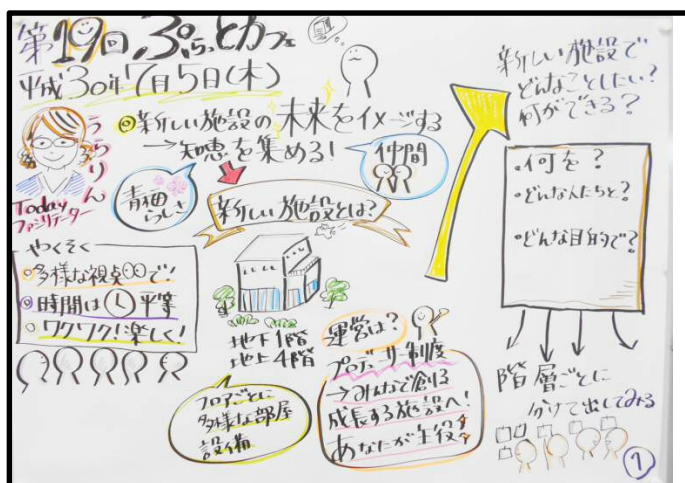 第19回 ぷらっとカフェ
平成30年7月5日(木)
うらりん
Today
ファシリテーター
◎新しい施設の未来をイメージする
→知恵を集める!
青梅
らしさ
仲間
新しい施設とは?
やくそく
○多様な視点で!
◎時間は平等
○ワクワク!楽しく!
地下1階
地上4階
フロアごとに
多様な部屋
設備
運営は?
プロデューサー制度
→みんなで創る
成長する施設へ!
あなたが主役
新しい施設で
どんなことしたい?
何ができる?
・何を?
・どんな人たちと?
・どんな目的で?
階層ごとに
分けて出してみる
1